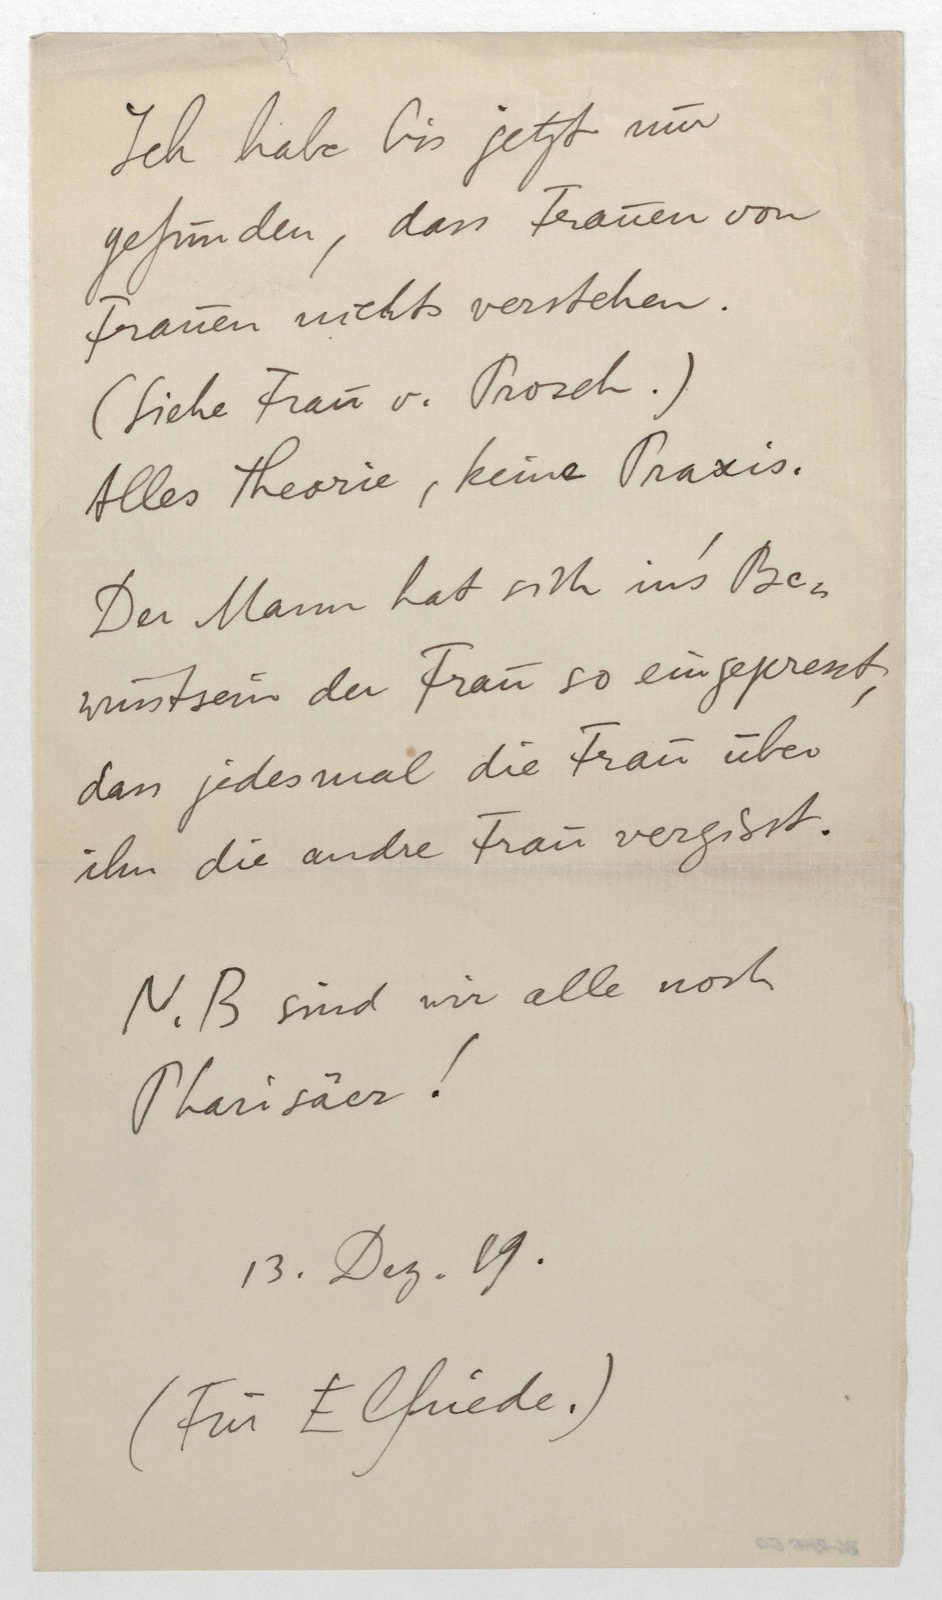 Ich habe bis jetzt nur
gefunden, dass Frauen von
Frauen nichts verstehen.
(Siehe Frau v. Prosch.)
Alles Theorie, keine Praxis.
Der Mann hat sich in's Be„
wusstsein der Frau so eingepresst,
dass jedesmal die Frau über
ihn die andre Frau vergisst.
N.B sind wir alle noch
Pharisäer!
13. Dez. 19.
(Für Elfriede.)